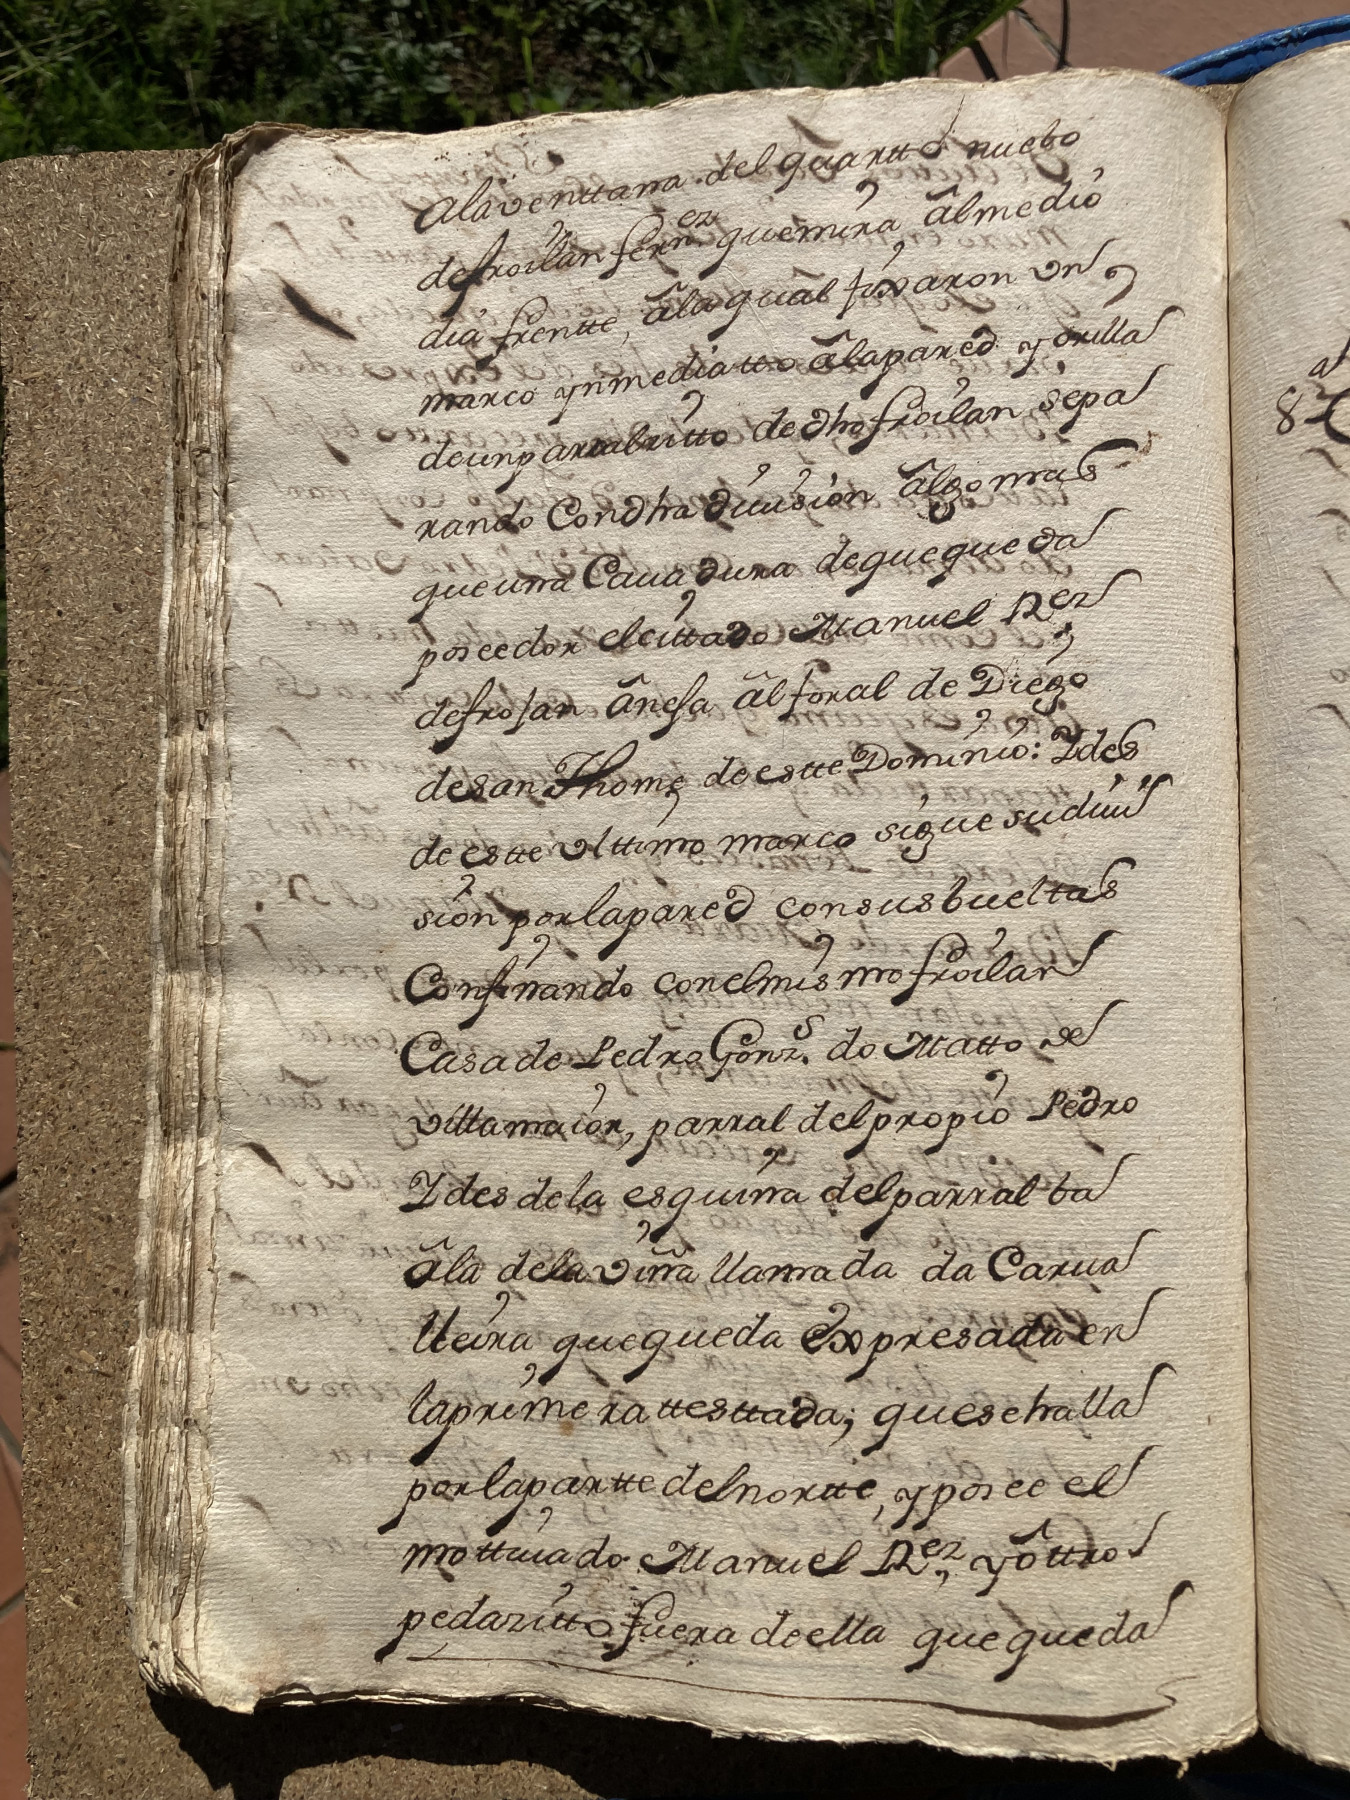 alaventtana del quartto nuebo
defroilan fern.ez que mira âl medio
dia frentte, âla qual fixaron vn
marco ynmediatto âlapared y orilla
deunparrabritto de dho froilan sepa
rando Con dha diuision âlgo mas
que una Cauadura de que queda
poseedor el cittado Manuel Rez
defrojan ânesa âl foral de Diego
desan Thome de estte Dominio: Y des
de estte vlttimo marco sigue su diui
sion por lapared con sus bueltas
Confinando con el mismo froilan
Casa de Pedro Gonz.s do Matto de
villamaior, parral del propio Pedro
Y des de la esquina del parral ba
âla dela viña llamada da Carua
lleira que queda expresada en
la primera ttesttada; que se halla
por la partte del nortte, y posee el
mottiuado Manuel Rez, y ôttro
pedazitto fuera de ella que queda
8.a